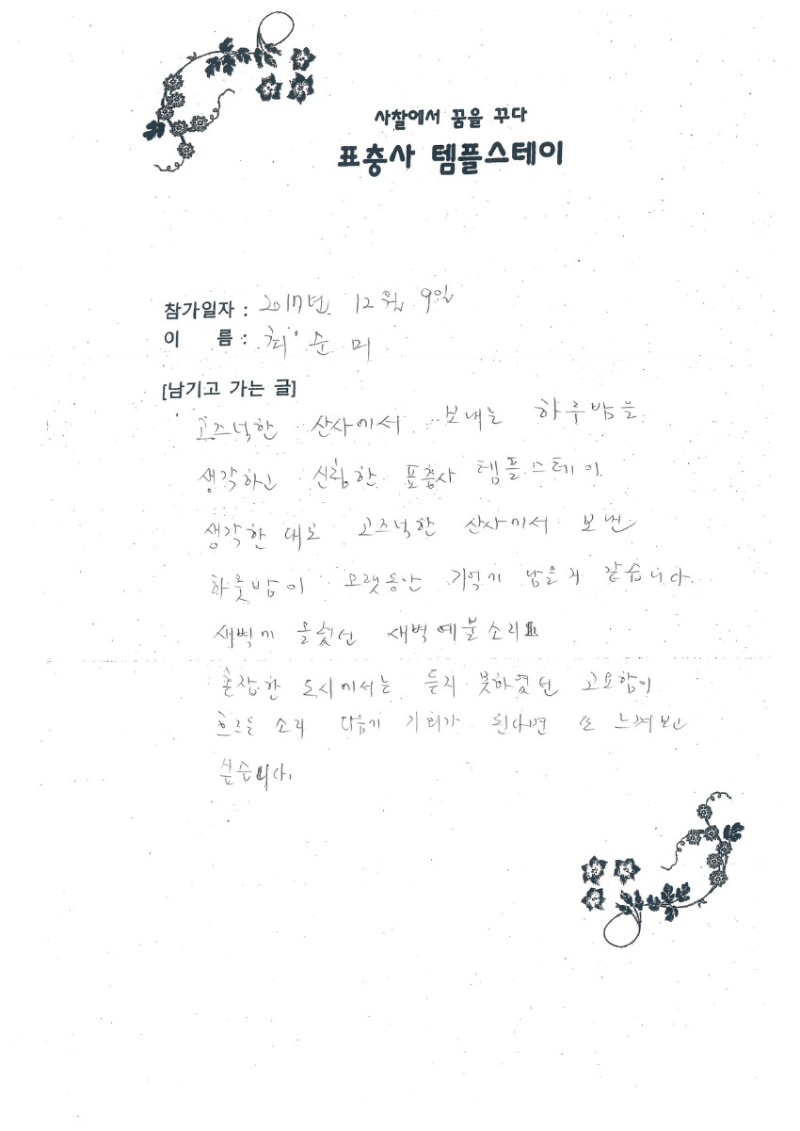 사찰에서 꿈을 꾸다
표충사 템플스테이
참가일자 : 2017년 12월 9일
이 름 : 최순미
[남기고 가는 글]
고즈넉한 산사에서 보내는 하루밤을
생각하고 신청한 표충사 템플스테이
생각한 대로 고즈넉한 산사에서 보낸
하룻밤이 오랫동안 기억에 남을거 같습니다.
새벽에 올렸던 새벽예불소리
혼잡한 도시에서는 듣지 못하였던 고요함이
흐르는 소리 다음에 기회가 된다면 또 느껴보고
싶습니다.